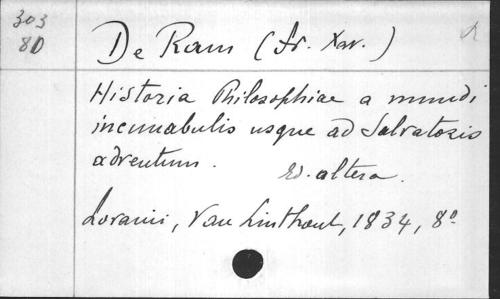 303
8D
De Ram (Fr. Xav.)
Historia Philosophiae a mundi
incunabulis usque ad Salvatoris
adventum. Ed. altera.
Lovanii, Van Linthout, 1834, 8°